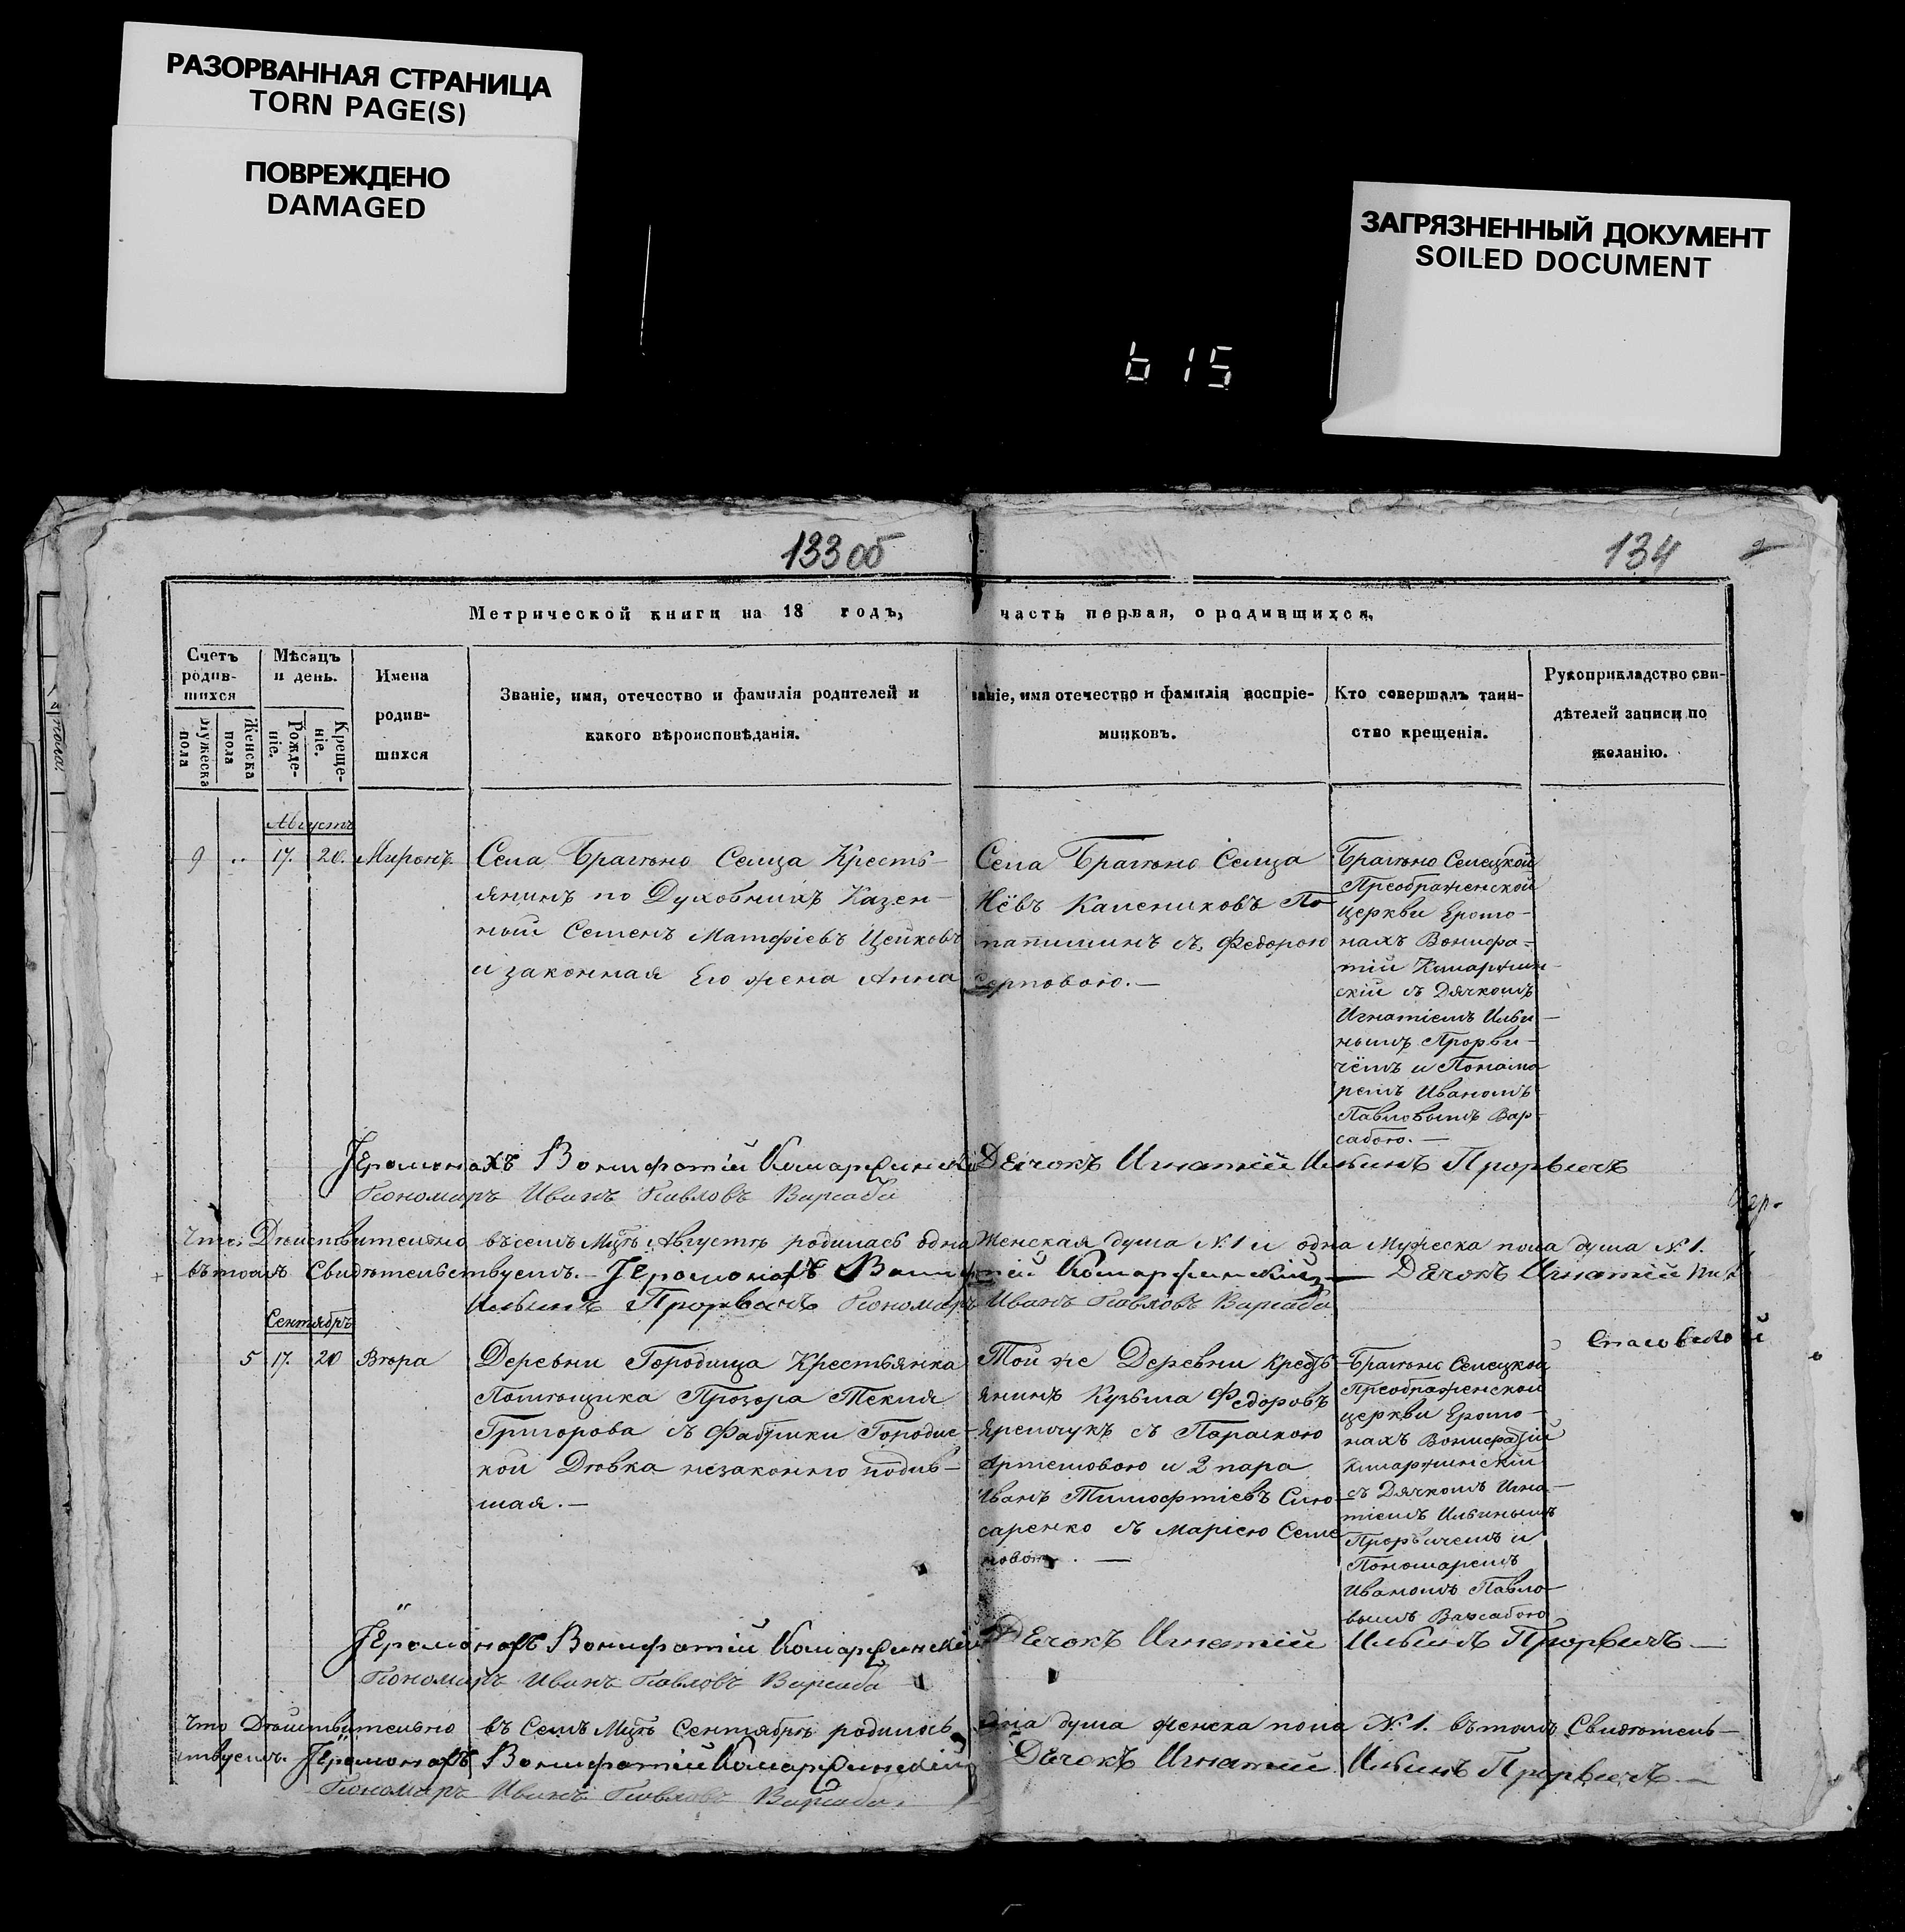 РАЗОРВАННАЯ СТРАНИЦА
TORN PAGE(S)
ПОВРЕЖДЕНО
DAMAGED
ЗАГРЯЗНЕННЫЙ ДОКУМЕНТ
SOILED DOCUMENT
615
133 об
134
Метрической книги на 18 годъ, часть первая, о родившихся,
Счетъ родив-шихся
Мужеска пола
Женска пола
Мѣсяцъ и день.
Рожде-ніе.
Креще-ніе.
Имена родив-шихся
Званіе, имя, отечество и фамилія родителей и
какого вѣроисповѣданія.
званіе, имя отечество и фамилія воспріе-
мниковъ.
Кто совершалъ таин-
ство крещенія.
Рукоприкладство сви-
дѣтелей записи по
желанію.
Августъ
9 .. 17. 20. Миронъ.
Села Брагѣно Селца Кресть-
янинъ по Духовникъ Казен-
ный Семенъ Матфіевъ
и законная Его жена Анна
Села Брагѣно Селца
съ Федорою
Брагѣно Селецкой
Преображенской
церкви Еромо-
нахъ Вонифа-
тій Комаржин-
скій съ Дячкомъ
Игнатіемъ Ильи-
нымъ Прорви-
чёмъ и Понама
ремъ Иваномъ
Павловымъ Вар-
сабою.
Іеромонахъ Вонифатій Комаржинскій Дечокъ Игнатій Ильинъ Прорвичъ
Пономаръ Иванъ Павловъ Варсаба
Что Дѣйствително въ семъ Мцѣ Августѣ родилась одна Женская душа №. 1 и одна Мужеска пола душа №. 1.
въ томъ Свидѣтельствуемъ. Іеромонахъ Вонифатій Комаржинскій Дечокъ Игнатій
Ильинъ Прорвичъ Пономаръ Иванъ Павловъ Варсаба
Сентябръ
5 17. 20 Вѣра
Деревни Городища Крестьянка
Помѣщика Прозора Текля
Григорова съ Фабрики Городис-
кой Дѣвка незаконно родив-
шая.
Той же Деревни Крест-
янинъ Кузьма Федоровъ
Яремчукъ съ Параскою
Артемовою и 2 пара
Иванъ Тимофтіевъ Слю-
саренко съ Маріею Семе
новою.
Брагѣно Селецкой
Преображенской
церкви Еромо-
нахъ Вонифатій
Комаржинскій
съ Дячкомъ Игна-
тіемъ Ильинымъ
Прорвичемъ и
Пономаремъ
Иваномъ Павло-
вымъ Варсабою
Іеромонахъ Вонифатій Комаржинскій Дечокъ Игнатій Ильинъ Прорвичъ
Пономаръ Иванъ Павловъ Варсаба
Что Дѣйствительно въ Семъ Мцѣ Сентябрѣ родилась одна душа женска пола №. 1. въ томъ Свидѣтель-
ствуемъ. Іеромонахъ Вонифатій Комаржинскій Дечокъ Игнатій Ильинъ Прорвичъ
Пономаръ Иванъ Павловъ Варсаба.